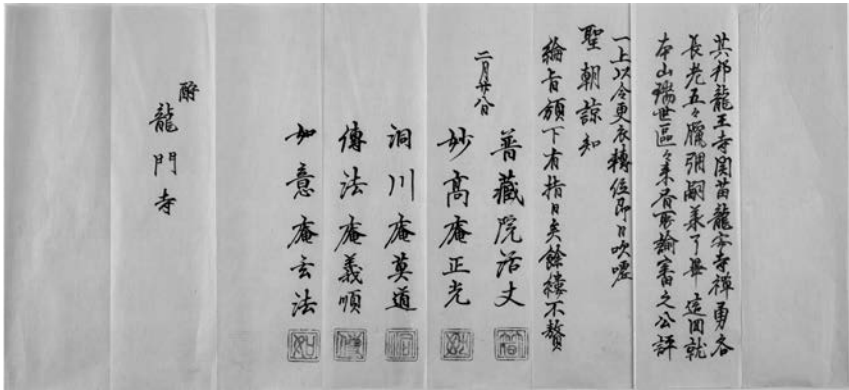 其邦龍王寺関苗龍安寺禅勇各
長老五々臘弸嗣養了畢這回就
本山瑞世區々来肩更諭審之公評
一上以令更衣轉位即日吹噓
聖朝諒知
綸旨頒下有指日矣餘績不贅
二月廿八日
普藏院活丈
妙高庵正光
洞川庵莫道
傳法庵義順
如意庵玄法
酹
龍門寺